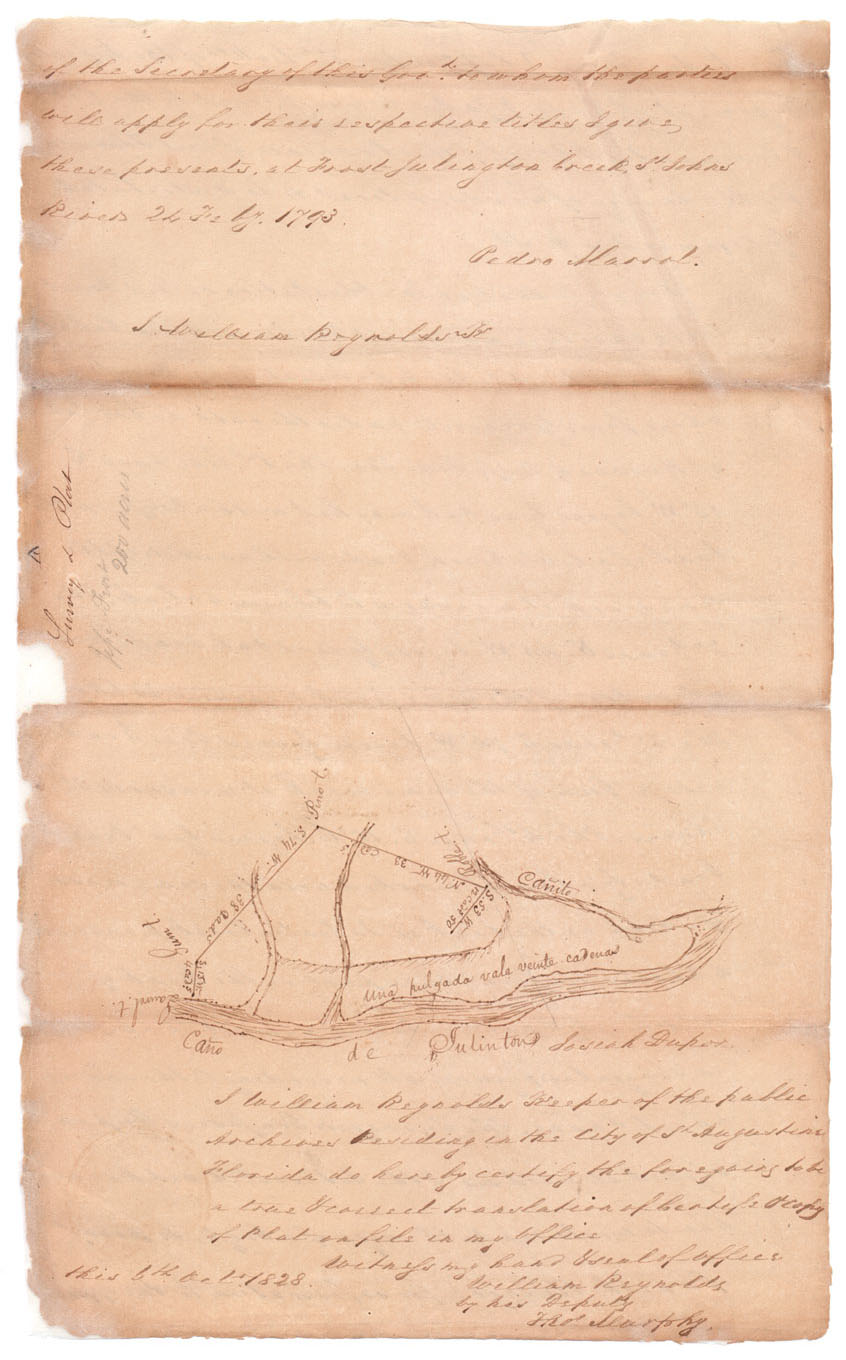 of the Secretary of this Govt. to whom the parties
will apply for their respective titles I give
these presents, at Frost Julington Creek, St Johns
River 24 Feby. 1793.
Pedro Marrot.
I William Reynolds Kr
Survey & Plat
200 acres
Pino t.
S. 74 W.
38 Cads
Gum t.
4 Cads
Laurel t.
N 64 W 33
Roble t.
S. 53 W
Cañito
una pulgada vale veinte cadenas
Caño de Julinton
Josiah Dupor.
I William Reynolds Keeper of the public
Archives Residing in the City of St Augustine
Florida do hereby certify the foregoing to be
a true & correct translation of Certife & Copy
of Plat on file in my Office
Witness my hand & seal of office
this 6th Octr 1828.
William Reynolds
by his Deputy
Thos Murphy.